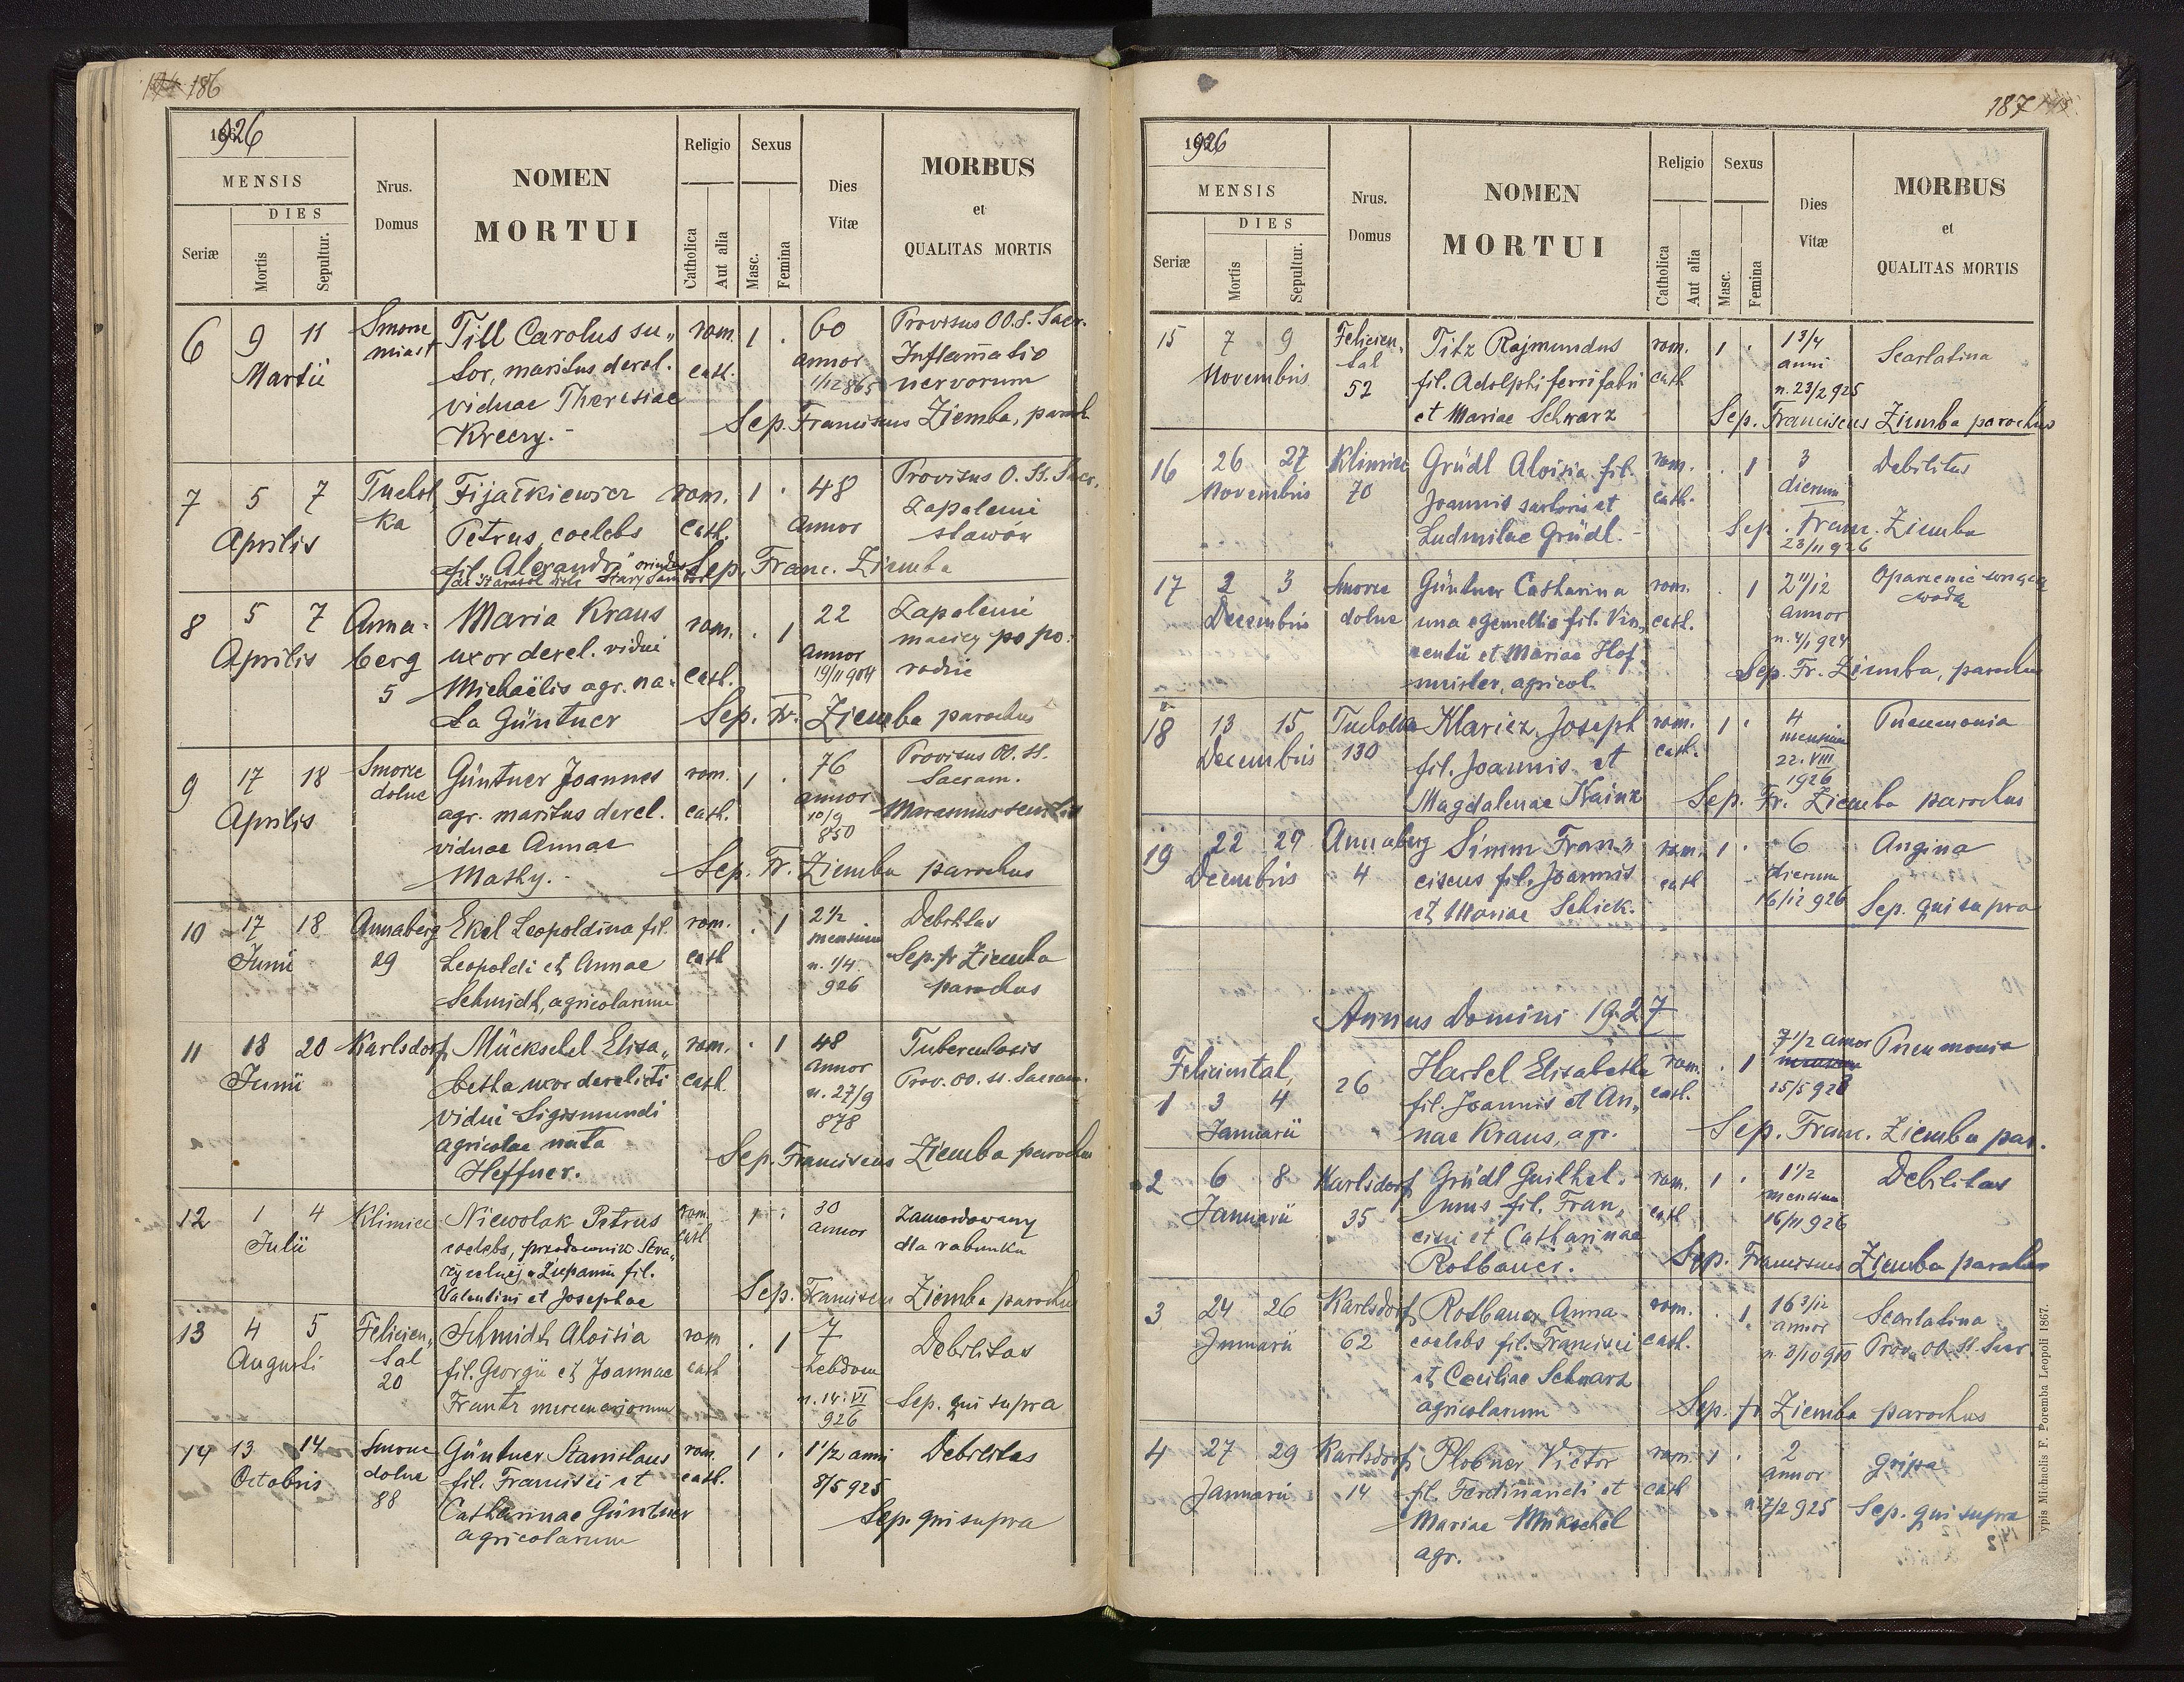 186
1926
MENSIS
DIES
Seriæ
Mortis
Sepultur.
Nrus.
Domus
NOMEN
MORTUI
Religio
Catholica
Aut alia
Sexus
Masc.
Femina
Dies
Vitæ
MORBUS
et
QUALITAS MORTIS
6 9 11 Smorze Till Carolus su„ rom. 1 · 60 Provisus OO.S. Sacr.
miast tor, maritus derel. cath. annor Inflamatio
Martii viduae Theresiae 1/12 865 nervorum
Kreczy.- Sep. Franciscus Ziemba, paroch
7 5 7 Tuchol Fijałkiewicz rom. 1 · 48 Provisus O. SS. Sacr.
Aprilis ka Petrus, coelebs cath. annor Zapalenie
fil. Alexandri oriundus stawów
Sep. Franc. Ziemba
8 5 7 Anna- Maria Kraus rom. · 1 22 Zapalenie
Aprilis berg uxor derel. vidui annor macicy po po-
5 Michaëlis agr. na- cath. 19/11 904 rodzie
ta Güntner Sep. Fr. Ziemba parochus
9 17 18 Smorze Güntner Joannes rom. 1 · 76 Provisus OO. SS.
Aprilis dolne agr. maritus derel. cath. annor Sacram.
viduae Annae 10/9 850 Marasmus senilis
Mathy.- Sep. Fr. Ziemba parochus
10 17 18 Annaberg Ekel Leopoldina fil. rom. · 1 2 1/2 Debilitas
Junii 29 Leopoldi et Annae cath mensium Sep. fr Ziemba
Schmidt, agricolarum n. 1/4 926 parochus
11 18 20 Karlsdorf Mückschel Elisa„ rom. · 1 48 Tuberculosis
Junii betha uxor derelicti cath. annor Prov. OO. SS. Sacram.
vidui Sigismundi n. 27/9
agricolae nata 878
Heffner. Sep. Franciscus Ziemba parochus
12 1 4 Klimiec Niewolak Petrus rom. 1 · 30 Zamordowany
Julii coelebs, przodownik Stra„ cath annor dla rabunku
fil.
Valentini et Josephae Sep. Franciscus Ziemba parochus
13 4 5 Felicien„ Schmidt Aloisia rom · 1 7 Debilitas
Augusti tal fil. Georgii et Joannae cath hebdom
20 Frantz mercenariorum n. 14. VI 926 Sep. qui supra
14 13 14 Smorze Güntner Stanislaus rom. 1 · 1 1/2 anni Debilitas
Octobris dolne fil. Francisci et cath. 8/5 925
88 Catharinae Güntner Sep. qui supra
agricolarum
187
1926
MENSIS
DIES
Seriæ
Mortis
Sepultur.
Nrus.
Domus
NOMEN
MORTUI
Religio
Catholica
Aut alia
Sexus
Masc.
Femina
Dies
Vitæ
MORBUS
et
QUALITAS MORTIS
15 7 9 Felicien„ Titz Rajmundus rom. 1 · 1 3/4 Scarlatina
Novembris tal fil. Adolphi ferrifabri cath anni
52 et Mariae Schwarz n. 23/2 925
Sep. Franciscus Ziemba parochus
16 26 27 Klimiec Grüdl Aloisia fil. rom. · 1 3 Debilitas
Novembris 70 Joannis sartoris et cath. dierum
Ludmilae Grüdl.- Sep. Franc. Ziemba
23/11 926
17 2 3 Smorze Güntner Catharina rom. · 1 2 11/12 Oparzenie gorącą
Decembris dolne una e gemellis fil. Vin„ cath. annor wodą
centii et Mariae Hof„ n. 4/1 924
meister, agricol. Sep. Fr. Ziemba, parochus
18 13 15 Tucholka Klaricz Joseph rom. 1 · 4 Pneumonia
Decembris 130 fil. Joannis et cath. mensium
Magdalenae Kainz 22. VIII 1926
Sep. Fr. Ziemba parochus
19 22 24 Annaberg Simm Fran„ rom. 1 · 6 Angina
Decembris 4 ciscus fil. Joannis cath dierum
et Mariae Schick. 16/12 926 Sep. qui supra
Annus Domini 1927
Felicientai 26 Hartel Elisabetha rom. · 1 7 1/2 annor Pneumonia
1 3 4 fil. Joannis et An„ cath. 25/5 92
Januarii nae Kraus, agr. Sep. Franc. Ziemba par.
2 6 8 Karlsdorf Grüdl Guilhel- rom. 1 · 1 1/2 Debilitas
Januarii 35 mus fil. Fran„ cath mensium
cisci et Catharinae 16/11 926
Rotbauer. Sep. Franciscus Ziemba parochus
3 24 26 Karlsdorf Rotbauer Anna rom. · 1 16 3/12 Scarlatina
Januarii 62 coelebs fil. Francisci cath. annor Prov. OO. SS. Sacr.
et Ceciliae Schwarz n. 3/10 910
agricolarum Sep. fr Ziemba parochus
4 27 29 Karlsdorf Plobner Victor rom. 1 · 2 gripa
Januarii 14 fil. Ferdinandi et cath annor
Mariae Mükschel n. 7/2 925 Sep. qui supra
agr.
ypis Michaelis F. Poremba Leopoli 1867.